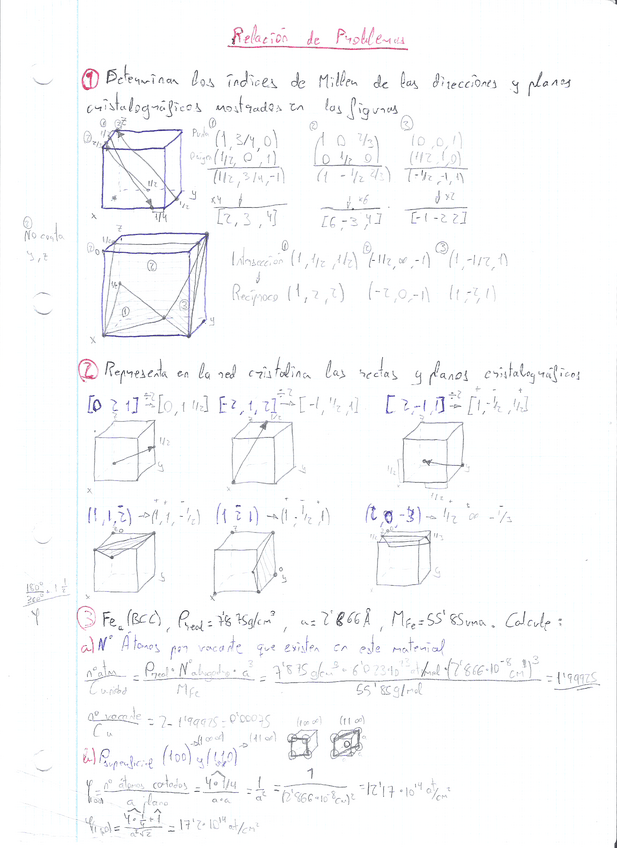 Relación de Problemas
① Determinar los índices de Miller de las direcciones y planos
cristalográficos mostrados en las figuras
Punto (1, 3/4, 0) (1 0 2/3) (0, 0, 1)
Origen (1/2, 0, 1) (0 1/2 0) (1/2, 1, 0)
(1/2, 3/4, -1) (1 -1/2 2/3) (-1/2, -1, 1)
x4 x6 x2
[2, 3, 4] [6, -3, 4] [-1 -2 2]
No corta
y, z
Intersección (1, 1/2, 1/2) (-1/2, ∞, -1) (1, -1/2, 1)
Recíproco (1, 2, 2) (-2, 0, -1) (1, -2, 1)
② Representa en la red cristalina las rectas y planos cristalográficos
[0 2 1] ÷2→ [0, 1 1/2] [-2, 1, 2] ÷2→ [-1, 1/2, 1] [2, -1, 1] ÷2→ [1, -1/2, 1/2]
(1, 1, 2̄) → (1, 1, -1/2) (1 2̄ 1) → (1, -1/2, 1) (2, 0, -3) → 1/2 ∞ -1/3
③ Feα (BCC), ρreal = 7'875 g/cm³, a = 2'866 Å, MFe = 55'85 uma. Calcule:
a) Nº Átomos por vacante que existen en este material
nº atm / C unidad = ρreal · Navogadro · a³ / MFe = 7'875 g/cm³ · 6'023·10²³ at/mol · (2'866·10⁻⁸ cm)³ / 55'85 g/mol = 1'99925
nº vacante / Cu = 2 - 1'99925 = 0'00075
b) ρsuperficial (100) y (110)
φ(100) = nº átomos cortados / a plano = 4 · 1/4 / a·a = 1/a² = 1 / (2'866·10⁻⁸ cm)² = 12'17·10¹⁴ at/cm²
φ(110) = 4 · 1/4 + 1 / a²√2 = 17'2·10¹⁴ at/cm²